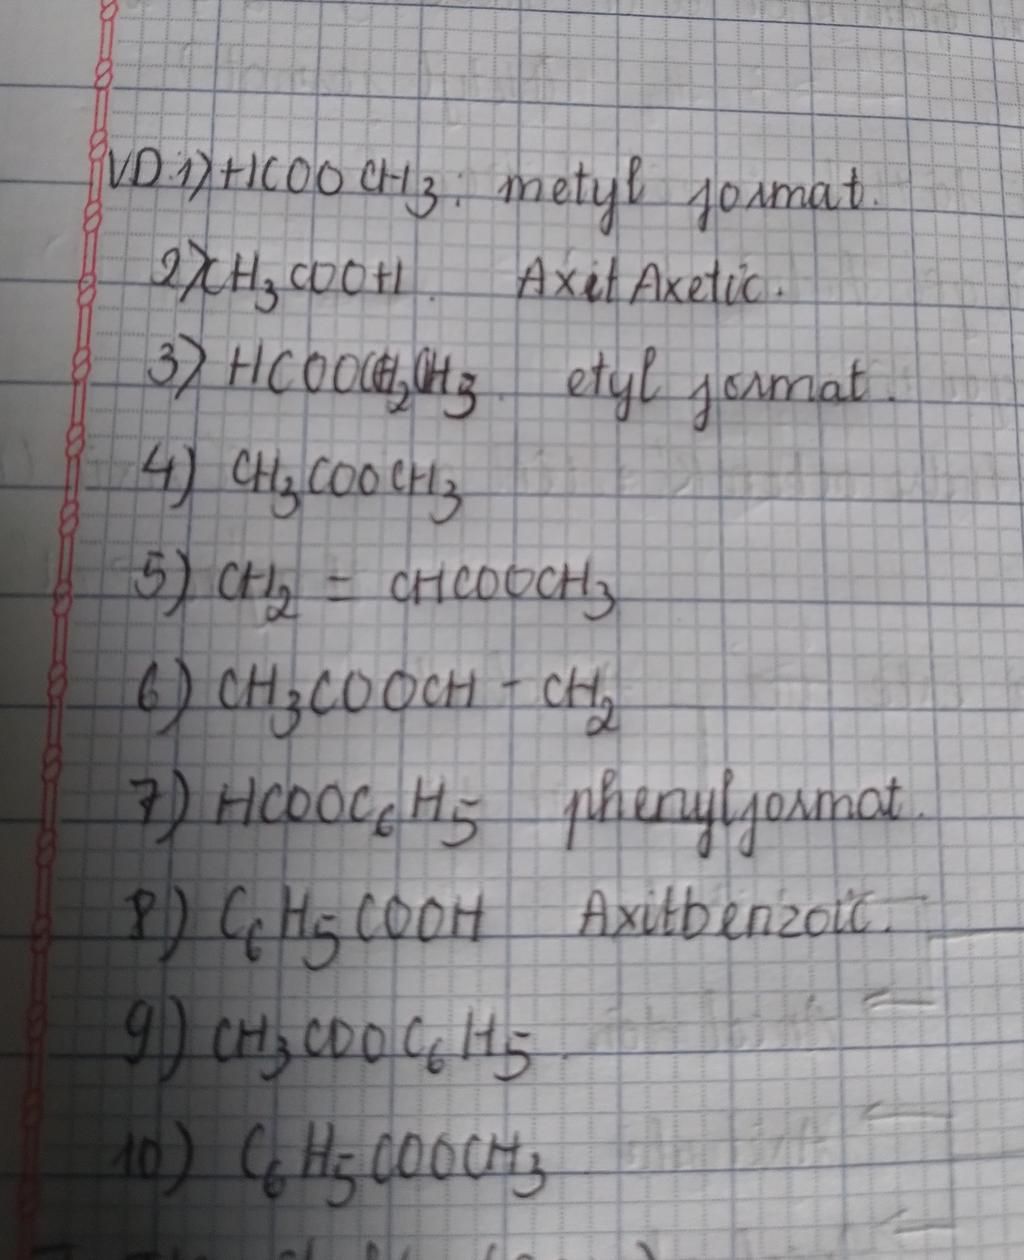 VD.1) HCOOCH3: metyl format.
2) CH3COOH. Axit Axetic.
3) HCOOCH2CH3. etyl format.
4) CH3COOCH3
5) CH2 = CHCOOCH3
6) CH3COOCH - CH2
7) HCOOC6H5 phenylformat.
8) C6H5COOH Axitbenzoic.
9) CH3COOC6H5
10) C6H5COOCH3